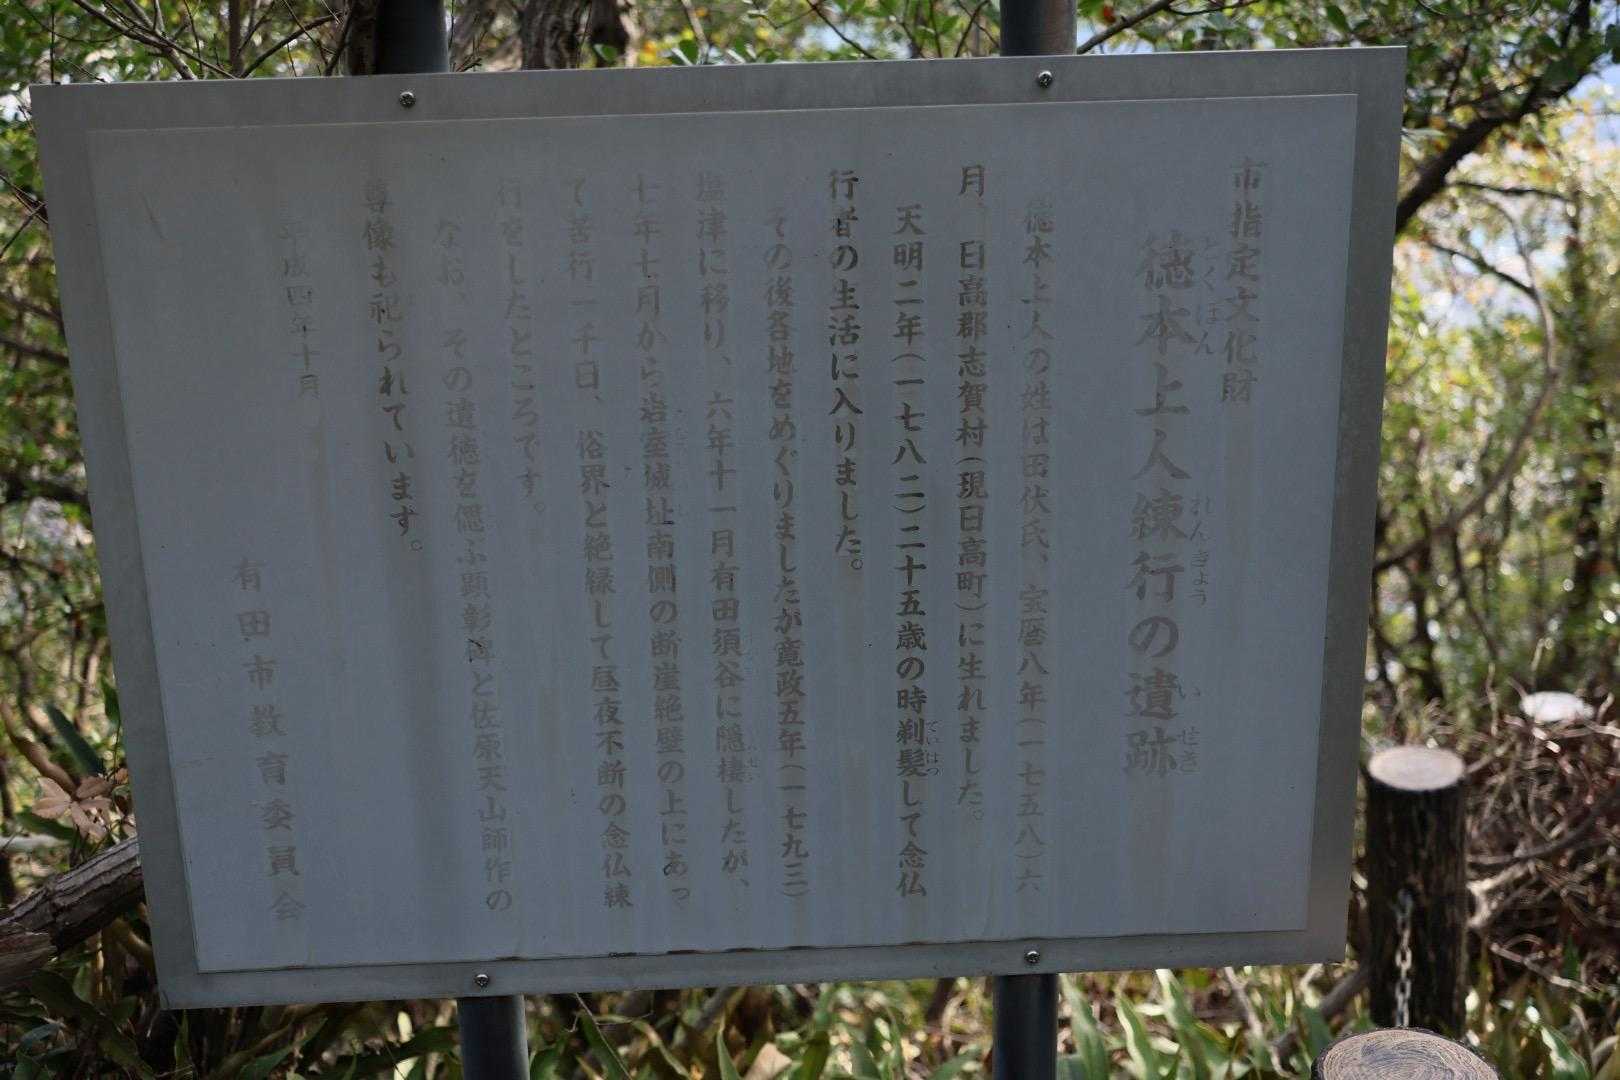 市指定文化財
徳本上人練行の遺跡
とくほん
れんぎょう
いせき
徳本上人の姓は田伏氏、宝暦八年(一七五八)六
月、日高郡志賀村(現日高町)に生れました。
天明二年(一七八二)二十五歳の時剃髪して念仏
ていはつ
行者の生活に入りました。
その後各地をめぐりましたが寛政五年(一七九三)
塩津に移り、六年十一月有田須谷に隠棲したが、
七年七月から岩室城址南側の断崖絶壁の上にあっ
て苦行一千日、俗界と絶縁して昼夜不断の念仏練
行をしたところです。
なお、その遺徳を偲ぶ顕彰碑と佐原天山師作の
尊像も祀られています。
平成四年十月
有田市教育委員会